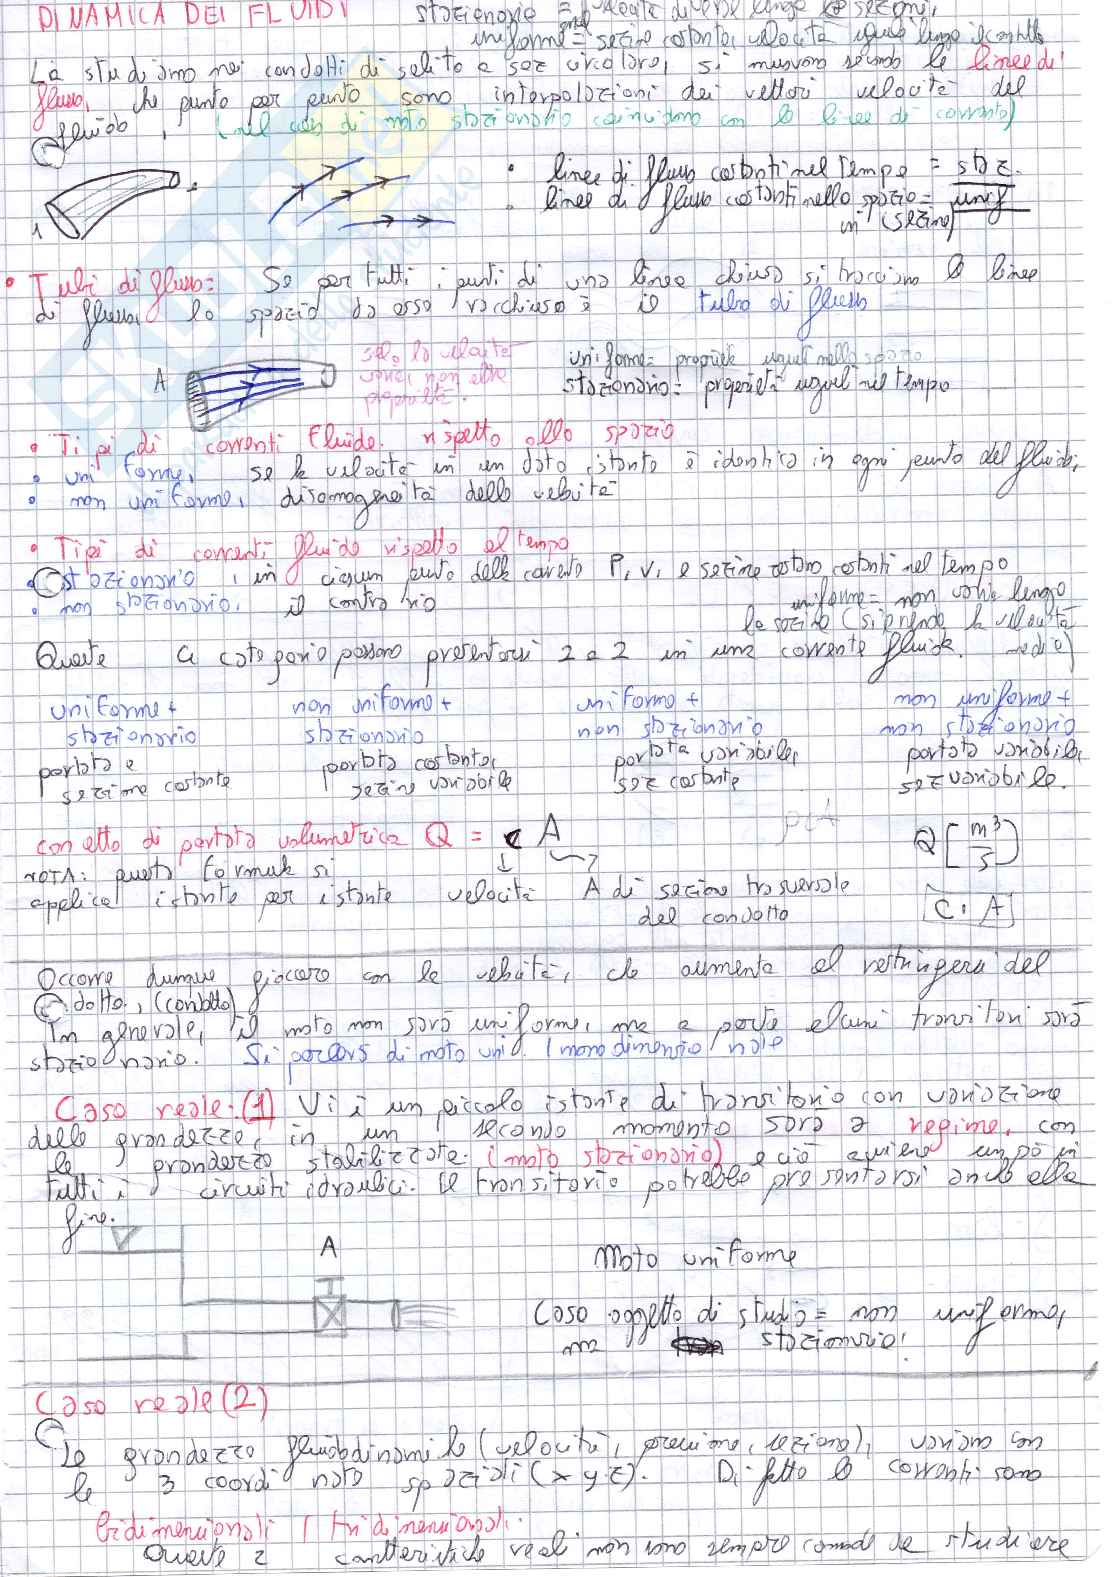 DINAMICA DEI FLUIDI
stazionario = portata diverse lungo le sezioni,
uniforme = sezione costante, velocità uguale lungo il condotto
La studiamo nei condotti di solito a sez circolare, si muovono secondo le linee di
flusso, che punto per punto sono interpolazioni dei vettori velocità del
fluido, (nel caso di moto stazionario coincidono con le linee di corrente)
• linee di flusso costanti nel tempo = staz.
• linee di flusso costanti nello spazio = unif
in (sezione)
1
2
• Tubi di flusso = Se per tutti i punti di una linea chiusa si tracciano le linee
di flusso, lo spazio da esse racchiuso è il tubo di flusso
A
solo la velocità
non altre
proprietà.
uniforme = proprietà uguali nello spazio
stazionario = proprietà uguali nel tempo
• Tipi di correnti fluide rispetto allo spazio
• uniforme, se la velocità in un dato istante è identica in ogni punto del fluido,
• non uniforme, disomogeneità della velocità
• Tipi di correnti fluide rispetto al tempo
• stazionario, in ciascun punto della corrente P, v, e sezione restano costanti nel tempo
• non stazionario, il contrario
uniforme = non varia lungo
la sezione (si prende la velocità
media)
Queste 4 categorie possono presentarsi 2 a 2 in una corrente fluida.
uniforme +
stazionario
portata e
sezione costante
non uniforme +
stazionario
portata costante,
sezione variabile
uniforme +
non stazionario
portata variabile,
sez costante
non uniforme +
non stazionario
portata variabile,
sez variabile.
concetto di portata volumetrica Q = c A
Q [m³/s]
NOTA: questa formula si
applica istante per istante
velocità
A di sezione trasversale
del condotto
C · A
Occorre dunque giocare con la velocità, che aumenta al restringersi del
c.dotto, (condotto)
In generale, il moto non sarà uniforme, ma a parte alcuni transitori sarà
stazionario. Si parlerà di moto uni. / monodimensionale
Caso reale: (1) Vi è un piccolo istante di transitorio con variazione
delle grandezze, in un secondo momento sarà a regime, con
le grandezze stabilizzate. (moto stazionario) e ciò avviene un pò in
tutti i circuiti idraulici. Il transitorio potrebbe presentarsi anche alla
fine.
A
Moto uniforme
Caso oggetto di studio = non uniforme,
ma stazionario.
Caso reale (2)
Le grandezze fluidodinamiche (velocità, pressione, sezione), variano con
le 3 coordinate spaziali (x y z). Di fatto le correnti sono
bidimensionali / tridimensionali.
Queste 2 caratteristiche reali non sono sempre comode da studiare